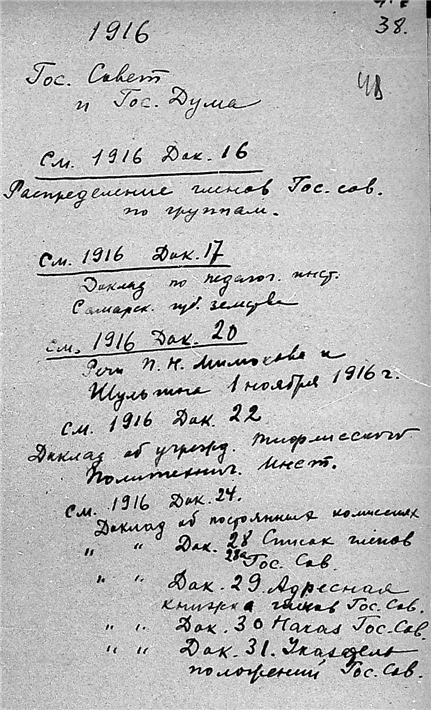 38.
1916
Гос. Совет
и Гос. Дума
См. 1916 Док. 16
Распределение членов Гос. сов.
по группам.
См. 1916 Док. 17
Доклад по педагог. инст.
Самарск. губ. земства
См. 1916 Док. 20
Речи П. Н. Милюкова и
Шульгина 1 ноября 1916 г.
См. 1916 Док. 22
Доклад об учрежд. Тифлисского
Политехнич. Инст.
См. 1916 Док. 24.
Доклад об постоянных комиссиях
" " Док. 28 Список членов
28а Гос. Сов.
" " Док. 29. Адресная
книжка членов Гос. Сов.
" " Док. 30 Наказ Гос. Сов.
" " Док. 31. Указатель
положений Гос. Сов.